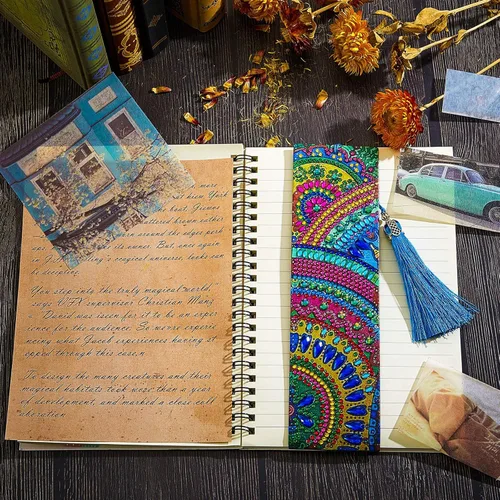 more
York
the best. Given
tattered brown either
worn around the edges perh
ups its owner. But, once again
in magical universe, looks can
be deceiving.
You step into the truly magical world,
says VFX supervisor Christian Manz
David was keen for it to be an exper
ience for the audience. So we're experie
ncing what Jacob experiences having st
epped through this case.n
To design the many creatures and their
magical habitats took more than a year
of development, and marked a close coll
aboration